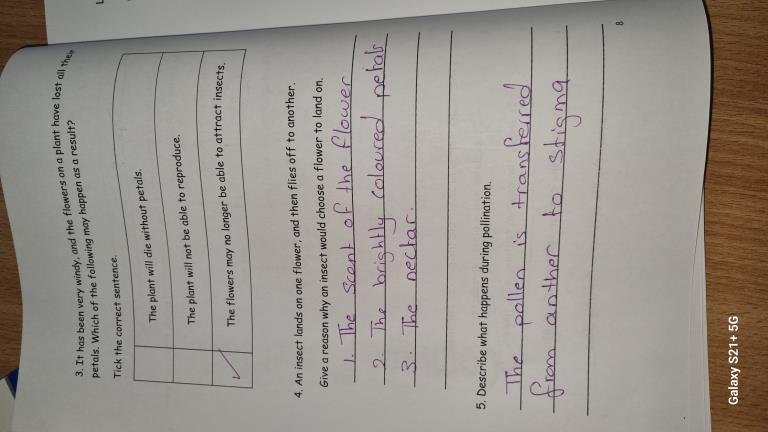 3. It has been very windy, and the flowers on a plant have lost all their
petals. Which of the following may happen as a result?
Tick the correct sentence.
The plant will die without petals.
The plant will not be able to reproduce.
✓ The flowers may no longer be able to attract insects.
4. An insect lands on one flower, and then flies off to another.
Give a reason why an insect would choose a flower to land on.
1. The scent of the flower
2. The brightly coloured petals
3. The nectar.
5. Describe what happens during pollination.
The pollen is transferred
from anther to stigma
8
Galaxy S21+ 5G